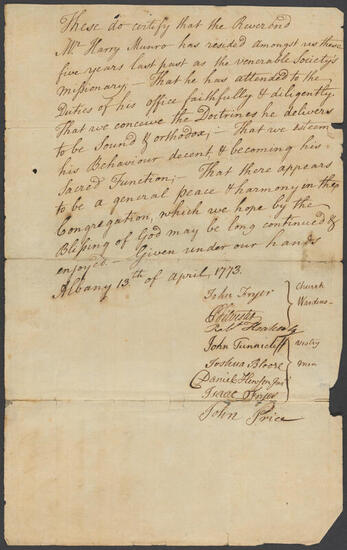 These do certify that the Reverend
Mr Harry Munro has resided amongst us these
five years last past as the venerable Society's
missionary,— That he has attended to the
Duties of his office faithfully & diligently
That we conceive the Doctrines he delivers
to be Sound & orthodox;— That we esteem
his Behaviour decent & becoming his
Sacred Function;— That there appears
to be a general peace & harmony in the
Congregation, which we hope by the
Blessing of God may be long continued &
enjoyed.— Given under our hands
Albany 13th of April, 1773.
John Fryer
Church
Wardens
John Tunnicliff
Vestry
Joshua Bloore
men
Daniel
Isaac Fryer
John Price